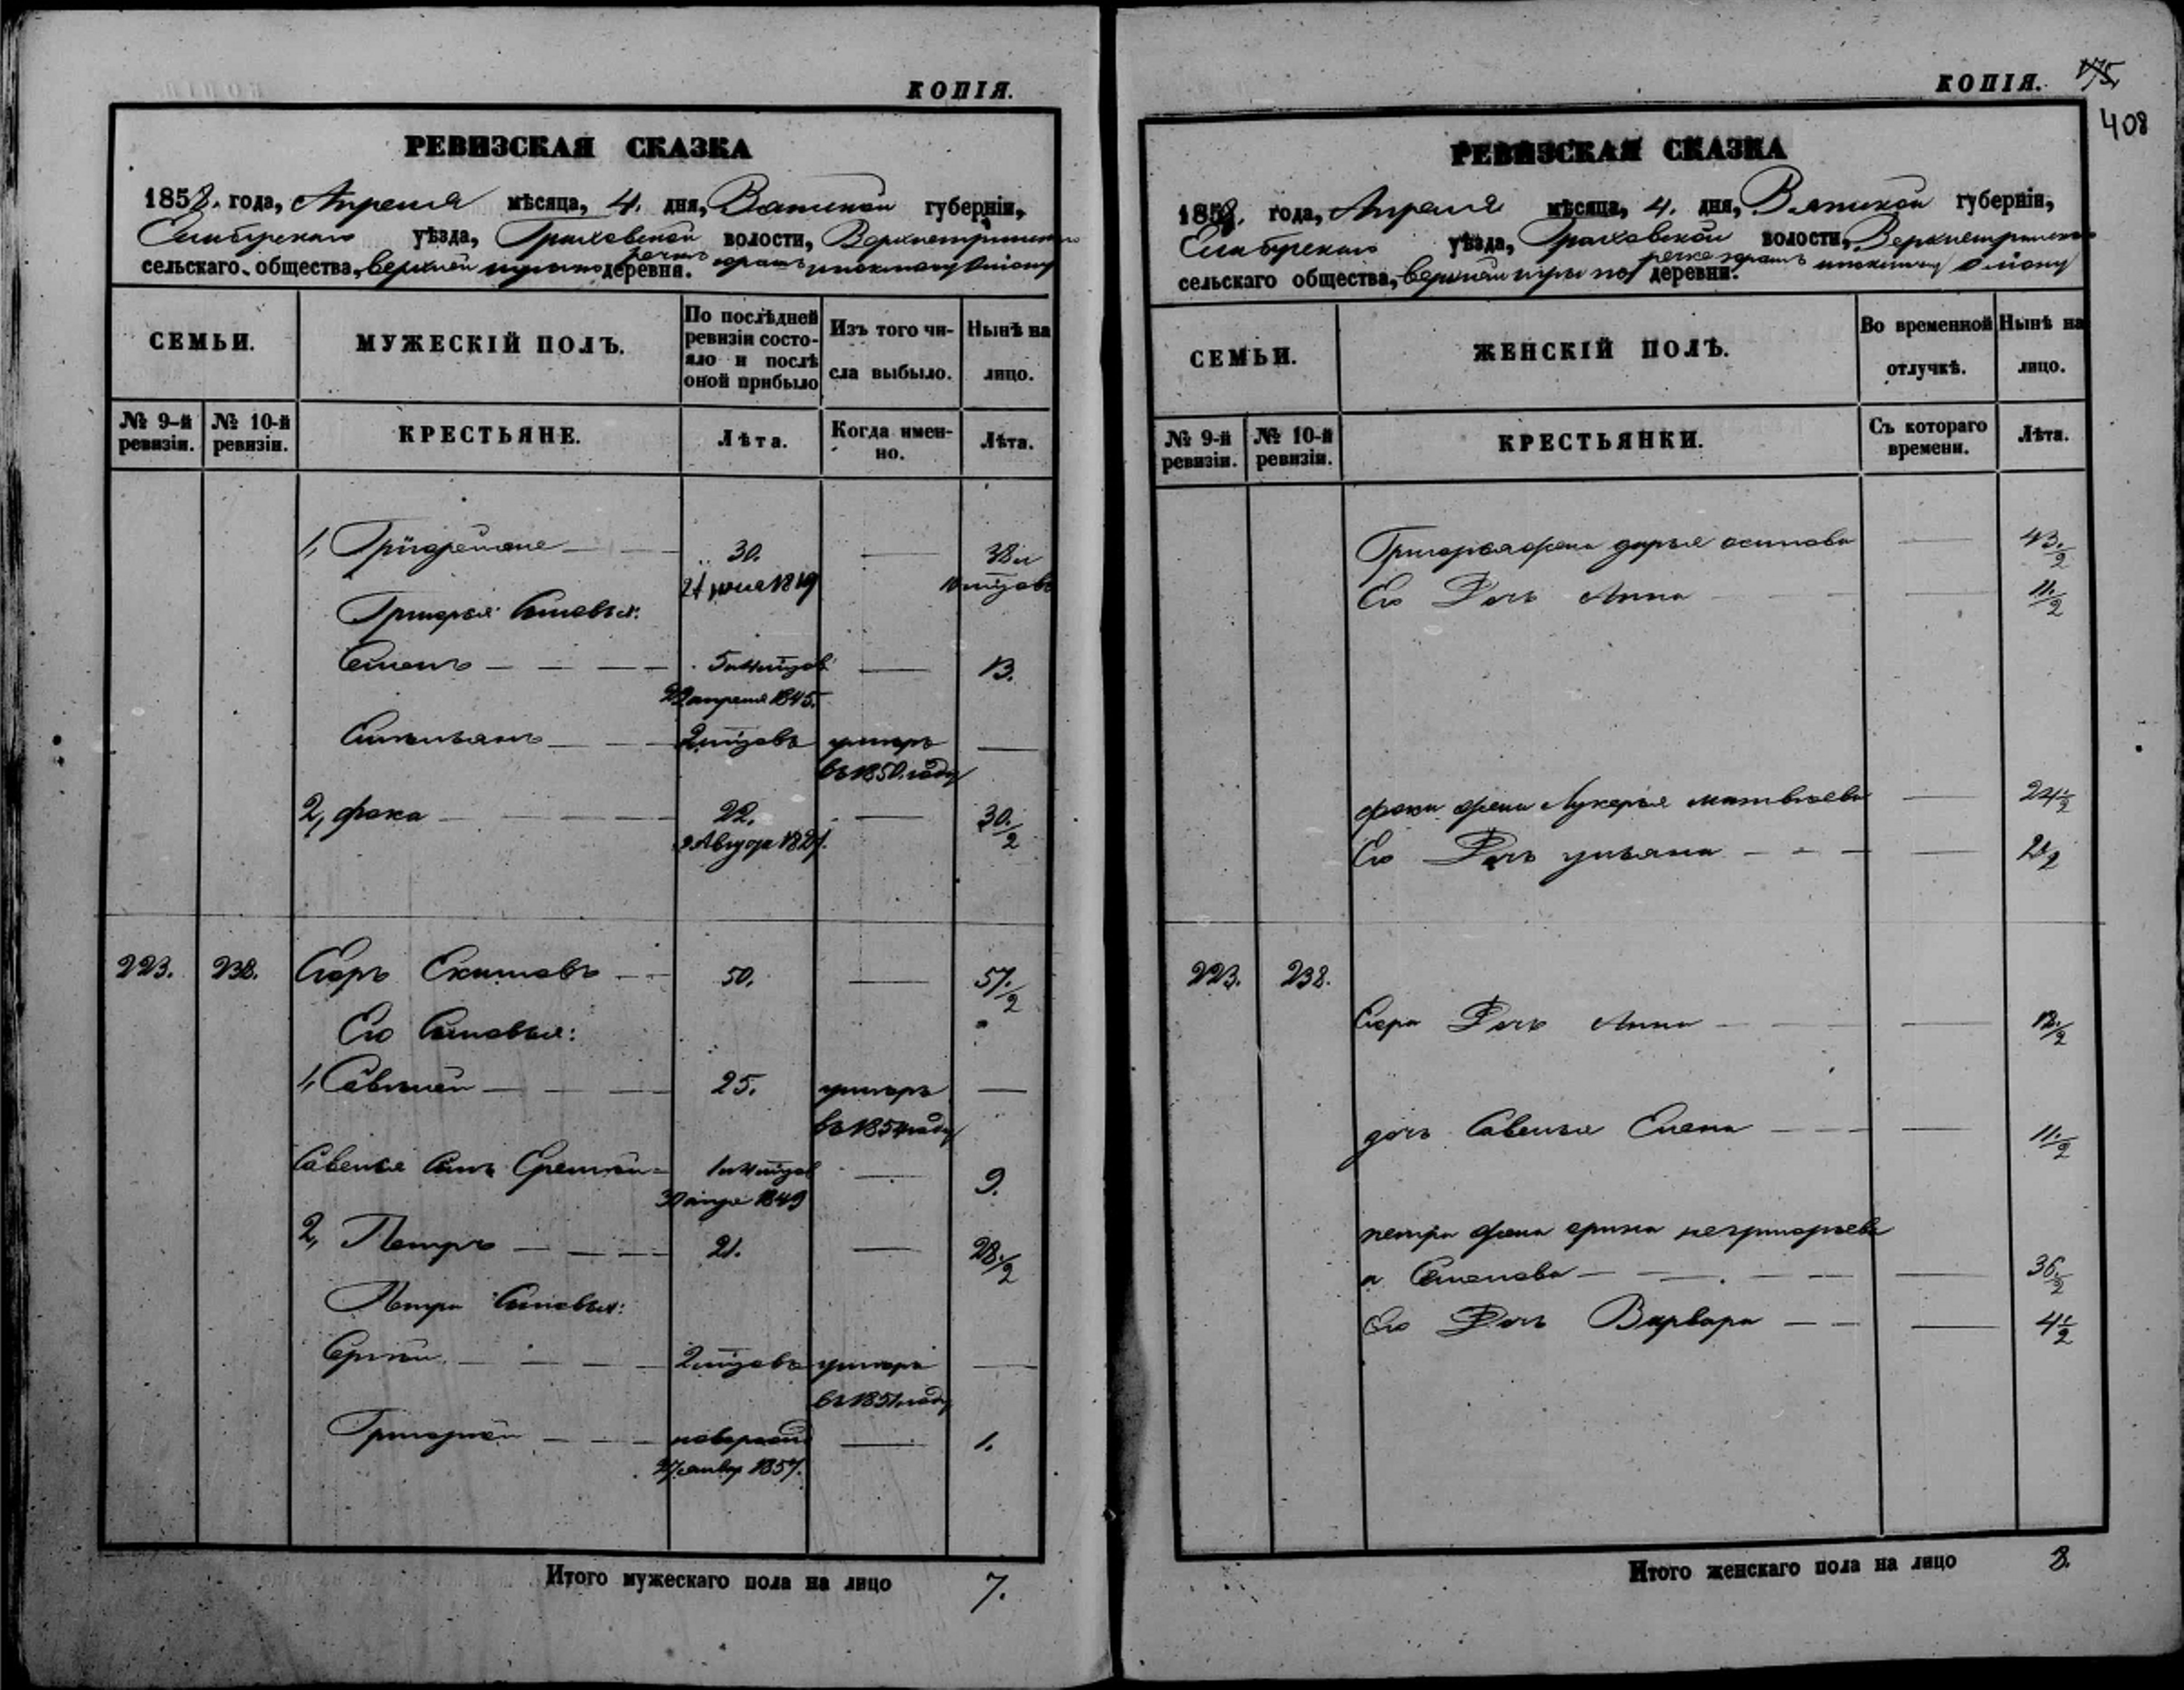 КОПІЯ.
РЕВИЗСКАЯ СКАЗКА
1858. года, Апреля мѣсяца, 4. дня, Вятской губерніи,
Елабугскаго уѣзда, Граховской волости,
сельскаго общества, верхней деревни.
СЕМЬИ.
МУЖЕСКІЙ ПОЛЪ.
По послѣдней ревизіи состояло и послѣ оной прибыло
Изъ того числа выбыло.
Нынѣ на лицо.
№ 9-й ревизіи.
№ 10-й ревизіи.
КРЕСТЬЯНЕ.
Лѣта.
Когда именно.
Лѣта.
1, 30. — 38 и
10 мцовъ
Григорья Сыновья:
Семенъ — 5 и 4 мцов — 13.
22 апреля 1845.
Емельянъ — 2 мцовъ умеръ —
въ 1850. году
2, фока — 22. — 30. 1/2
9 Августа
223. 238. Егоръ 50. — 57. 1/2
Его Сыновья:
1, Савелей — 25. умеръ —
въ 1854 году
Савелья Сынъ 1 и 4 мцов — 9.
1849
2, Петръ — 21. — 28. 1/2
Петра Сыновья:
Сергѣй — 2 мцовъ умеръ —
въ 1851 году
Григорей — — 1.
27 январ 1857.
Итого мужескаго пола на лицо 7.
КОПІЯ. 175
408
РЕВИЗСКАЯ СКАЗКА
1858. года, Апреля мѣсяца, 4. дня, Вятской губерніи,
Елабугскаго уѣзда, Граховской волости,
сельскаго общества, верхней деревни.
СЕМЬИ.
ЖЕНСКІЙ ПОЛЪ.
Во временной отлучкѣ.
Нынѣ на лицо.
№ 9-й ревизіи.
№ 10-й ревизіи.
КРЕСТЬЯНКИ.
Съ котораго времени.
Лѣта.
Григорья жена дарья осипова — 43. 1/2
Его Дочь Анна — 11. 1/2
фоки жена Лукерья матвѣева — 24 1/2
Его Дочь ульяна — 2 1/2
223. 238.
Егора Дочь Анна — 12. 1/2
дочь Савелья Елена — 11. 1/2
петра жена
а Семенова — 36. 1/2
Его Дочь Варвара — 4 1/2
Итого женскаго пола на лицо 8.